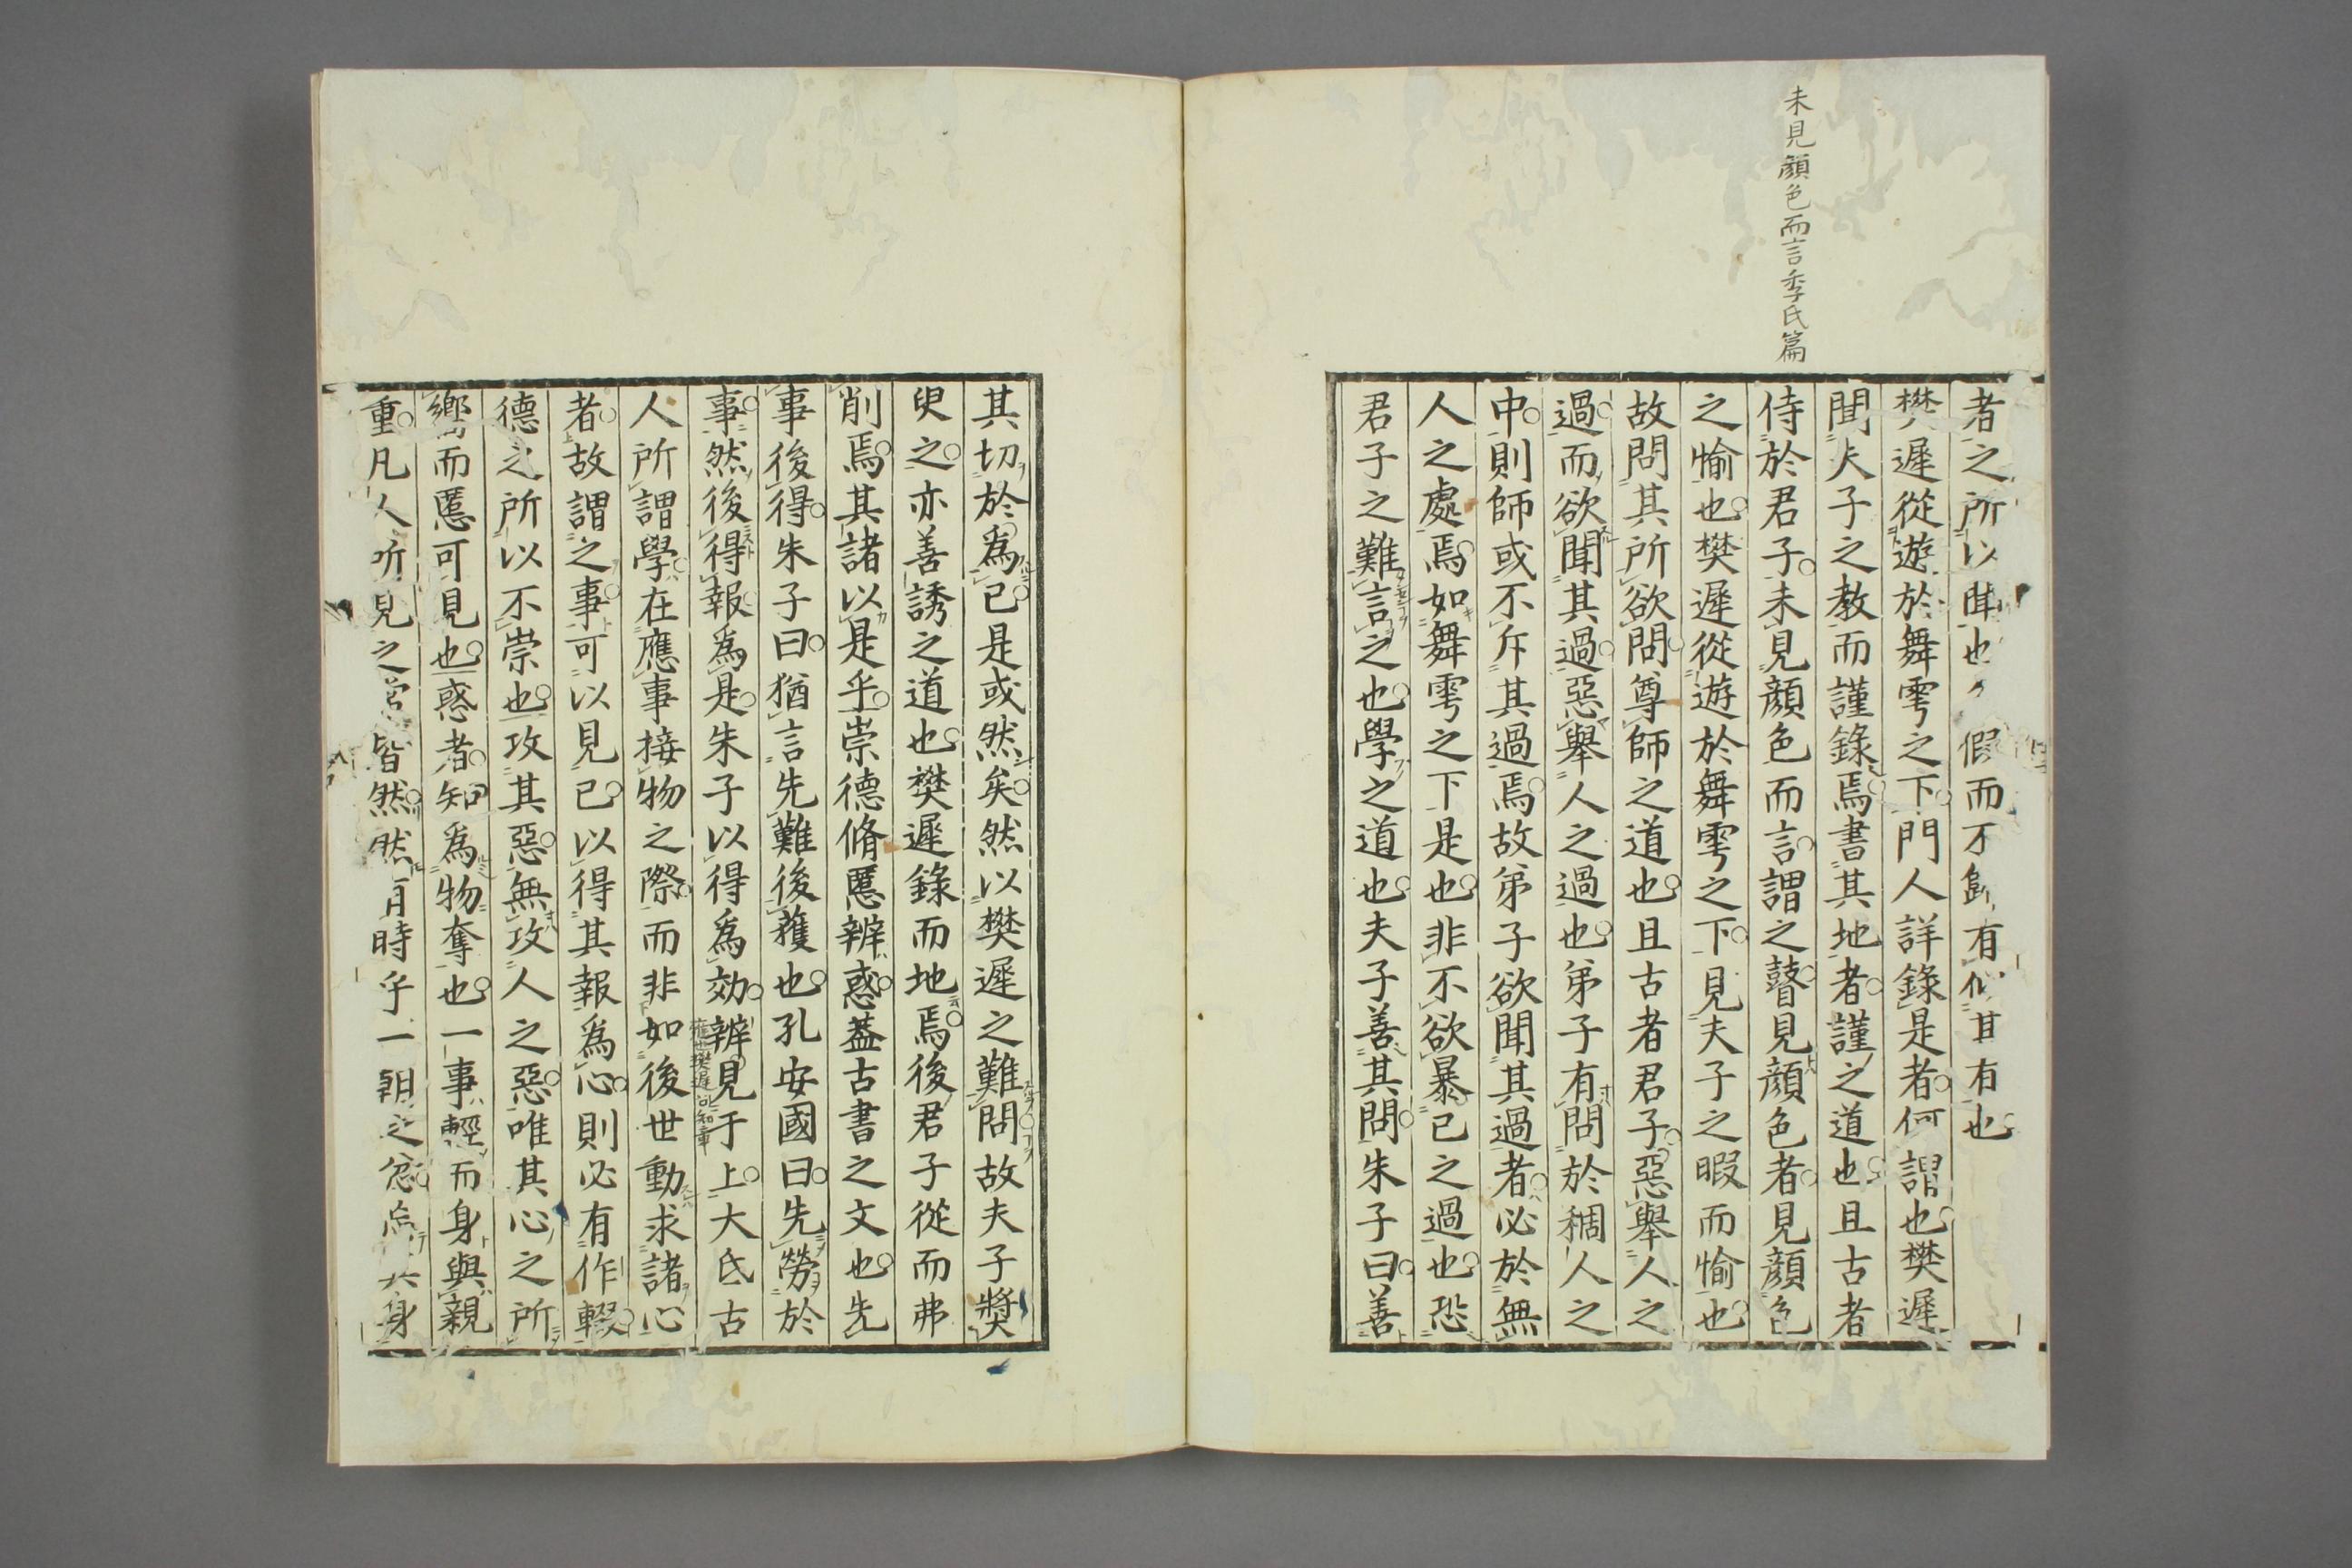 未見顔色而言季氏篇
者之所以聞也 假而不 有 其有也
樊遲從遊於舞雩之下門人詳錄是者何謂也樊遲
聞夫子之教而謹錄焉書其地者謹之道也且古者
侍於君子未見顔色而言謂之瞽見顔色者見顔色
之愉也樊遲從遊於舞雩之下見夫子之暇而愉也
故問其所欲問尊師之道也且古者君子惡舉人之
過而欲聞其過惡舉人之過也弟子有問於稠人之
中則師或不斥其過焉故弟子欲聞其過者必於無
人之處焉如舞雩之下是也非不欲暴己之過也恐
君子之難言之也學之道也夫子善其問朱子曰善
其切於爲己是或然矣然以樊遲之難問故夫子奬
臾之亦善誘之道也樊遲錄而地焉後君子從而弗
削焉其諸以是乎崇德脩慝辨惑葢古書之文也先
事後得朱子曰猶言先難後獲也孔安國曰先勞於
事然後得報爲是朱子以得爲効辨見于上大氐古
雍也樊遲問知章
人所謂學在應事接物之際而非如後世動求諸心
者故謂之事可以見已以得其報爲心則必有作輟
德之所以不崇也攻其惡無攻人之惡唯其心之所
嚮而慝可見也惑者知爲物奪也一事輕而身與親
重凡人所見之 皆然然有時乎一朝之忿 其身